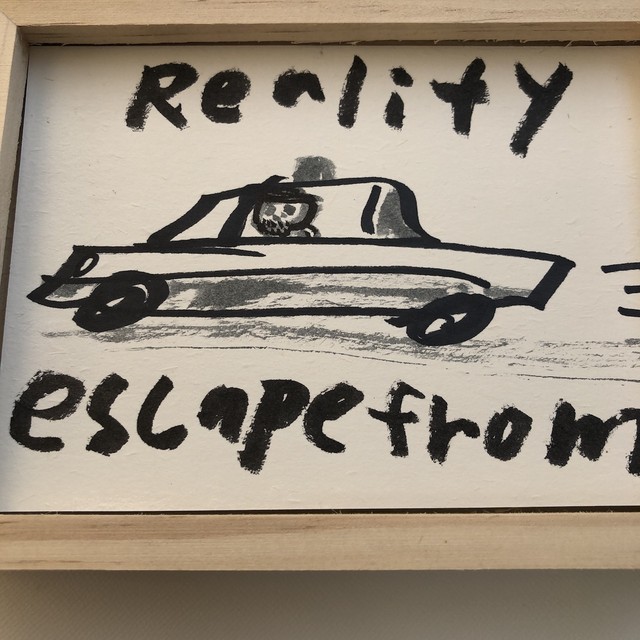 Reality
escape from